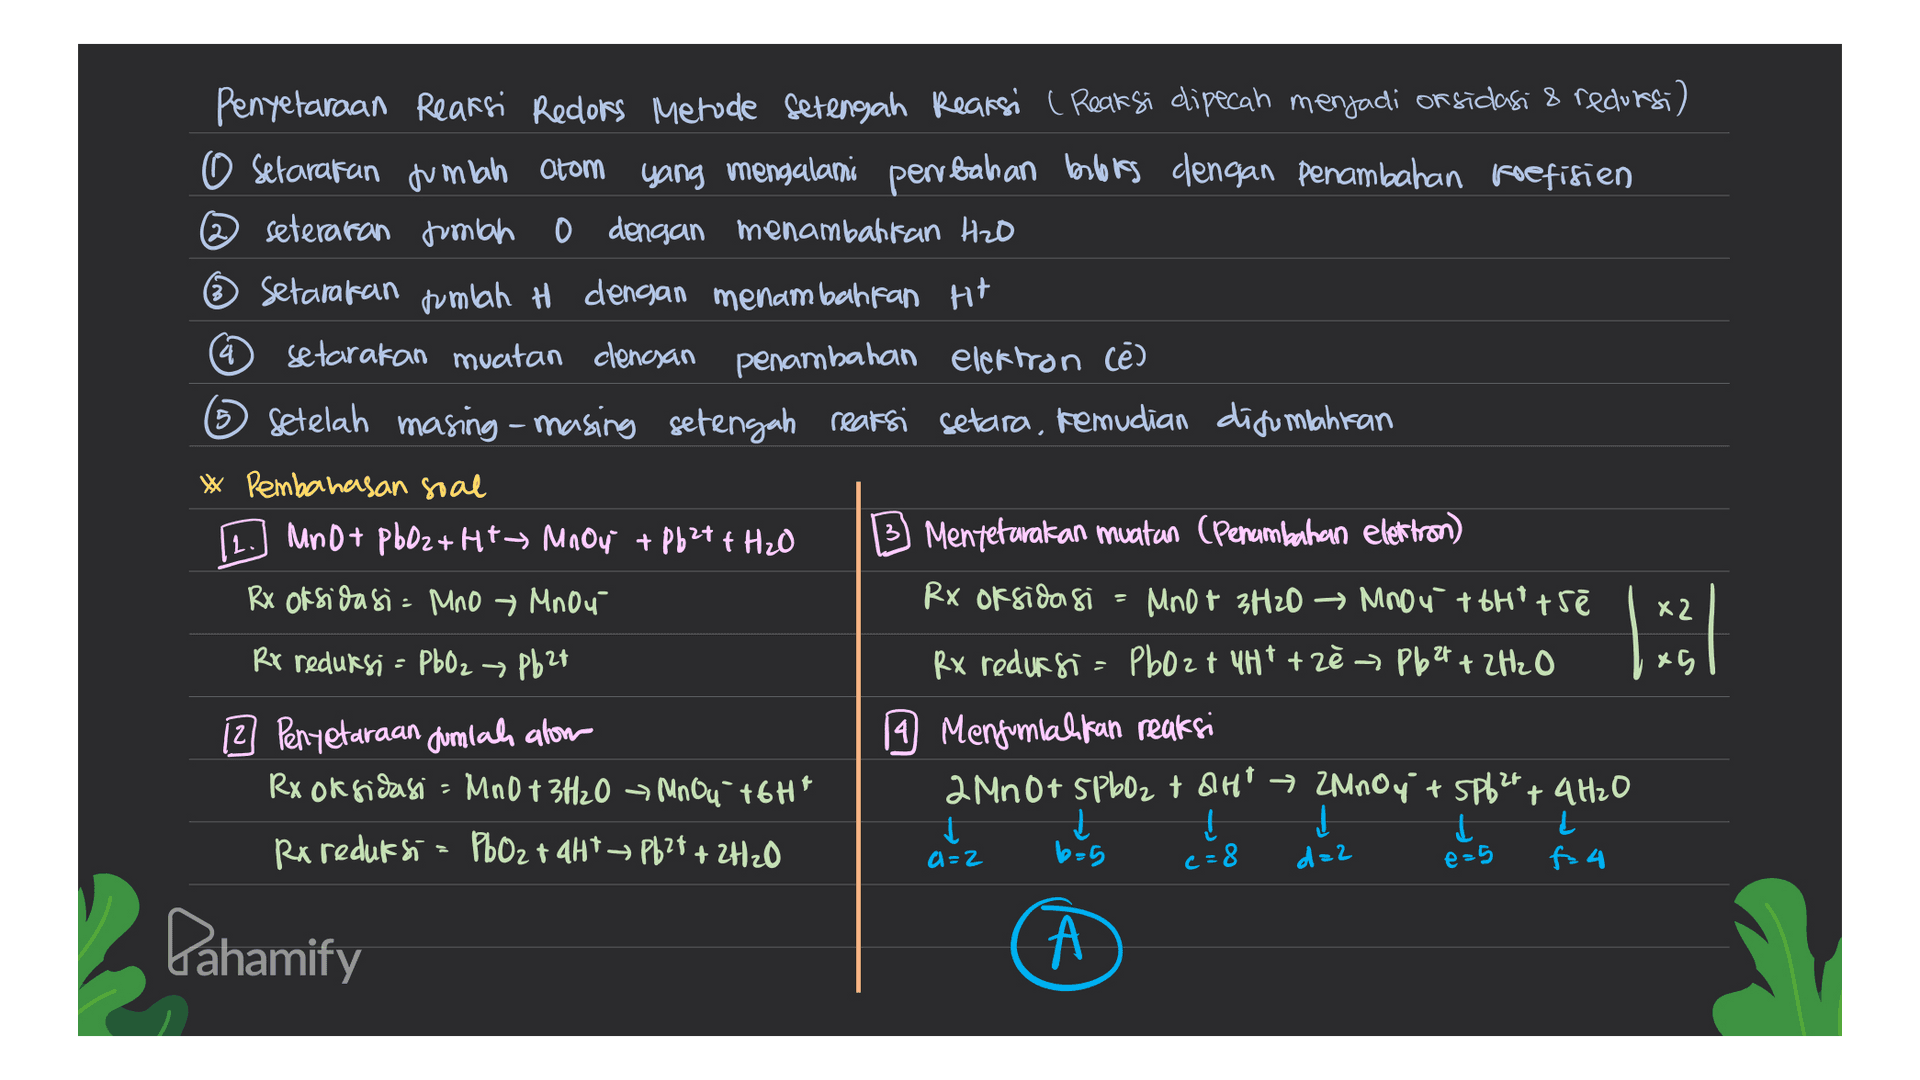 Penyetaraan Reaksi Redoks Metode Setengah Reaksi (Reaksi dipecah menjadi oksidasi & reduksi)
① Setarakan jumlah atom yang mengalami perubahan biloks dengan penambahan koefisien
② seterakan jumlah O dengan menambahkan H₂O
③ Setarakan jumlah H dengan menambahkan H⁺
④ setarakan muatan dengan penambahan elektron (ē)
⑤ Setelah masing-masing setengah reaksi setara, kemudian dijumlahkan
※ Pembahasan soal
1. MnO + PbO₂ + H⁺ → MnO₄⁻ + Pb²⁺ + H₂O
Rx oksidasi = MnO → MnO₄⁻
Rx reduksi = PbO₂ → Pb²⁺
2 Penyetaraan jumlah atom
Rx oksidasi = MnO + 3H₂O → MnO₄⁻ + 6H⁺
Rx reduksi = PbO₂ + 4H⁺ → Pb²⁺ + 2H₂O
3 Menyetarakan muatan (Penambahan elektron)
Rx oksidasi = MnO + 3H₂O → MnO₄⁻ + 6H⁺ + 5ē | x2 |
Rx reduksi = PbO₂ + 4H⁺ + 2ē → Pb²⁺ + 2H₂O | x5 |
4 Menjumlahkan reaksi
2MnO + 5PbO₂ + 8H⁺ → 2MnO₄⁻ + 5Pb²⁺ + 4H₂O
↓ ↓ ↓ ↓ ↓ ↓
a=2 b=5 c=8 d=2 e=5 f=4
A
Pahamify